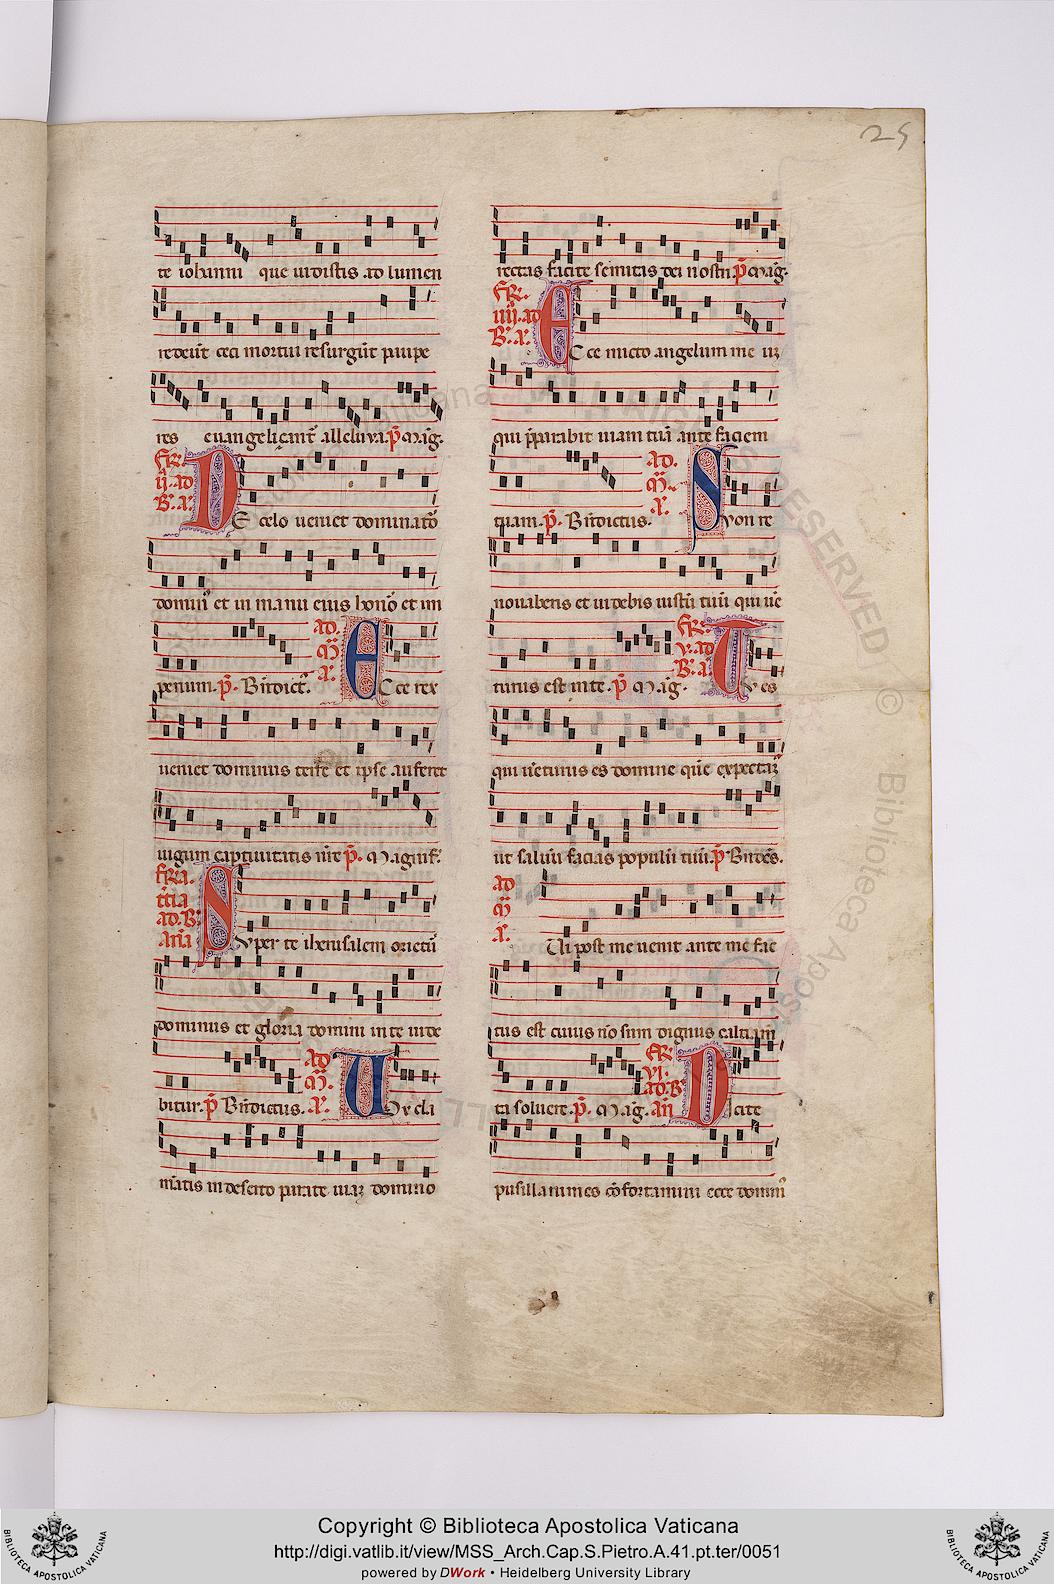 25
te iohanni que uidistis ad lumen
redeūt ceci mortui resurgūt paupe
res euangeliçant̄ alleluya. p̄s Mag̅.
Fr̅. ij. ad B. a. D E celo ueniet dominator̄
domin̄ et in manu eius honor̄ et im
perium. p̄s. Bn̄dict̄. ad M̄. a. E Cce rex
ueniet dominus terre et ipse auferet
iugum captiuitatis nr̄e p̄s. Magnif̄.
feria. t̄cia ad. B. Anā S Vper te iherusalem orietur̄
dominus et gloria domini in te uide
bitur. p̄s Bn̄dictus. ad M̄. a. U Ox cla
m̄atis in deserto parate uiaꝫ domino
rectas facite semitas dei nostri p̄s Mag̅.
Fr̅. iiij. ad B. a. E Cce mitto angelum me uꝫ
qui p̄parabit uiam tuā ante faciem
tuam. p̄s. Bn̄dictus. ad. M̄. a. S yon re
nouaberis et uidebis iustū tuū qui ue
turus est in te. p̄s Mag̅. Fr̅. v. ad B. a. T V es
qui uēturus es domine quē expectam̄
ut saluū facias populū tuū. p̄s Bn̄dc̄s.
ad M̄ a. Qui post me uenit ante me fac
tus est cuius nō sum dignus calciam̄
ta soluere. p̄s. Mag. Fr̅. vi. ad. B an̄ D icite
pusillanimes cōfortamini ecce domin̄
Copyright © Biblioteca Apostolica Vaticana
http://digi.vatlib.it/view/MSS_Arch.Cap.S.Pietro.A.41.pt.ter/0051
powered by DWork • Heidelberg University Library
BIBLIOTECA APOSTOLICA VATICANA
BIBLIOTECA APOSTOLICA VATICANA